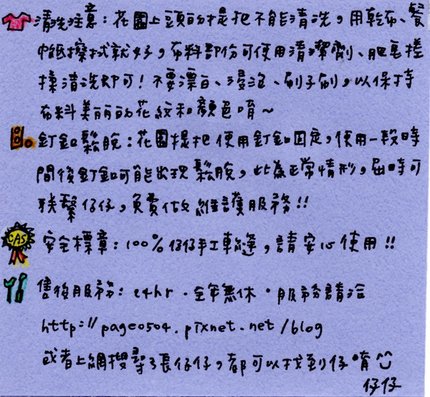 清洗注意：花圈上頭的提把不能清洗，用乾布、餐
巾紙擦拭就好，布料部份可使用清潔劑、肥皂搓
揉清洗即可！不要漂白、浸泡、刷子刷，以保持
布料美麗的花紋和顏色唷～
釘釦鬆脫：花圈提把使用釘釦固定，使用一段時
間後釘釦可能出現鬆脫，此為正常情形，屆時可
聯繫仔仔，免費做維護服務!!
CAS
安全標章：100%仔仔手工車縫，請安心使用!!
售後服務：24hr·全年無休·服務請洽
http://page0504.pixnet.net/blog
或者上網搜尋張仔仔，都可以找到仔唷
仔仔